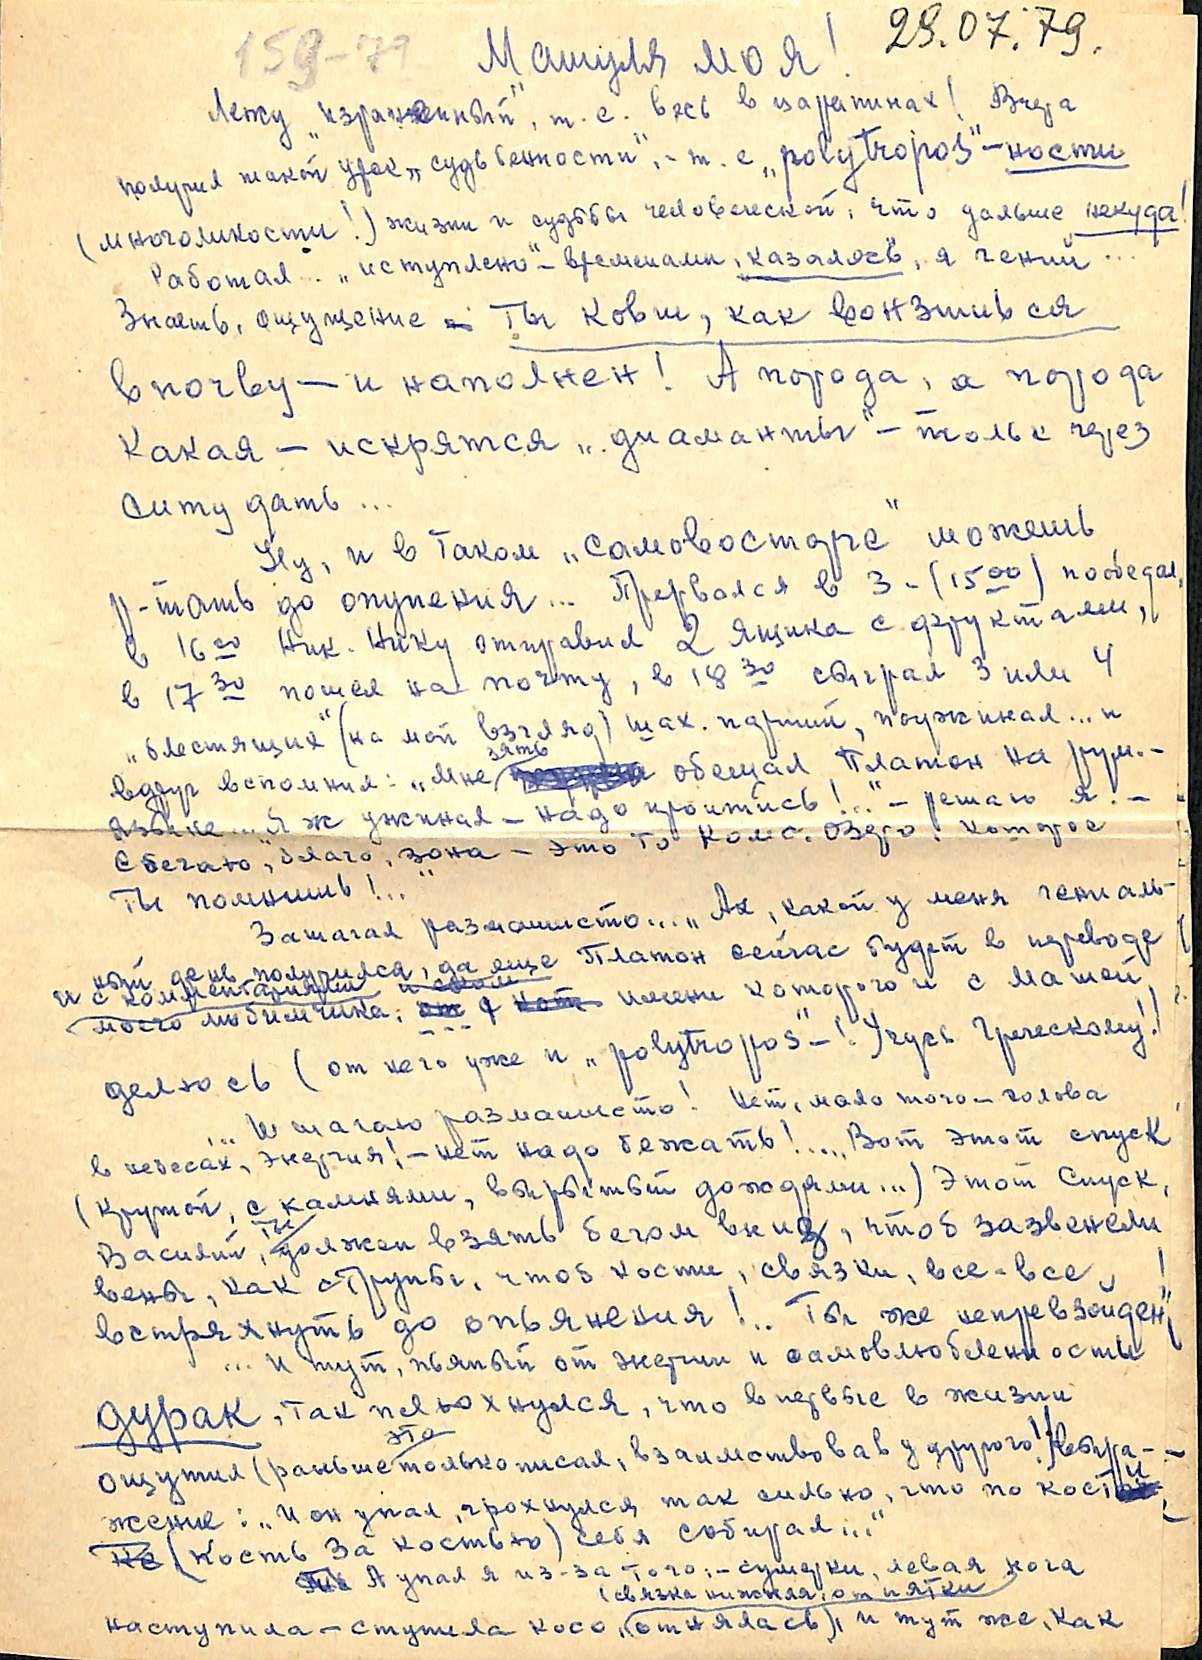 159-79
Машуля моя! 29.07.79.
Лежу „израненный", т.е. весь в царапинах! Вчера
получил такой урок „судьбенности", - т.е „polytropos"-ности
(многоликости!) жизни и судьбы человеческой, что дальше некуда!
Работал... „иступлено" - временами, казалось, я гений...
Знаешь, ощущение - Ты ковш, как вонзится
в почву - и наполнен! А порода, а порода
Какая - искрятся „диаманты" - только через
ситу дать...
Ну, и в таком „самовосторге" можешь
р-тать до опупения... Прервался в 3 - (15 00) пообедал,
в 16 00 Ник. Нику отправил 2 ящика с фруктами,
в 17 30 пошел на почту, в 18 30 сыграл 3 или 4
„блестящих" (на мой взгляд) шах. партий, поужинал... и
вдруг вспомнил: „Мне зять обещал Платон на рум.-
языке... Я ж ужинал - надо пройтись!..." - решаю я. -
Сбегаю, „благо, зона - это то Комс. озеро которое
Ты помнишь!..."
Зашагал размашисто... „Ах, какой у меня гениаль-
ный день получился, да еще Платон сейчас будет в переводе
и с комментариями и
моего любимчика, имени которого и с Машей,
делюсь (от него уже и „polytropos" - ! Учусь Греческому!)
И шагаю размашисто! Нет, мало того - голова
в небесах, энергия! - нет надо бежать!... Вот этот спуск
(крутой, с камнями, вырытый дождями...) Этот спуск,
Василий, ты должен взять бегом вниз, чтоб зазвенели
вены, как струны, чтоб кости, связки, все-все,
встряхнуть до опьянения!.. Ты же непревзойден!"
... и тут, пьяный от энергии и самовлюбленности
дурак, так плюхнулся, что впервые в жизни
ощутил (раньше это только писал, взаимствовав у другого!) выра-
жение: „И он упал, грохнулся так сильно, что по кости
(кость за костью) себя собирал..."
А упал я из-за того: - сумерки, левая нога
(связка нижняя, от пятки
наступила - ступила косо, отнялась), и тут же, как